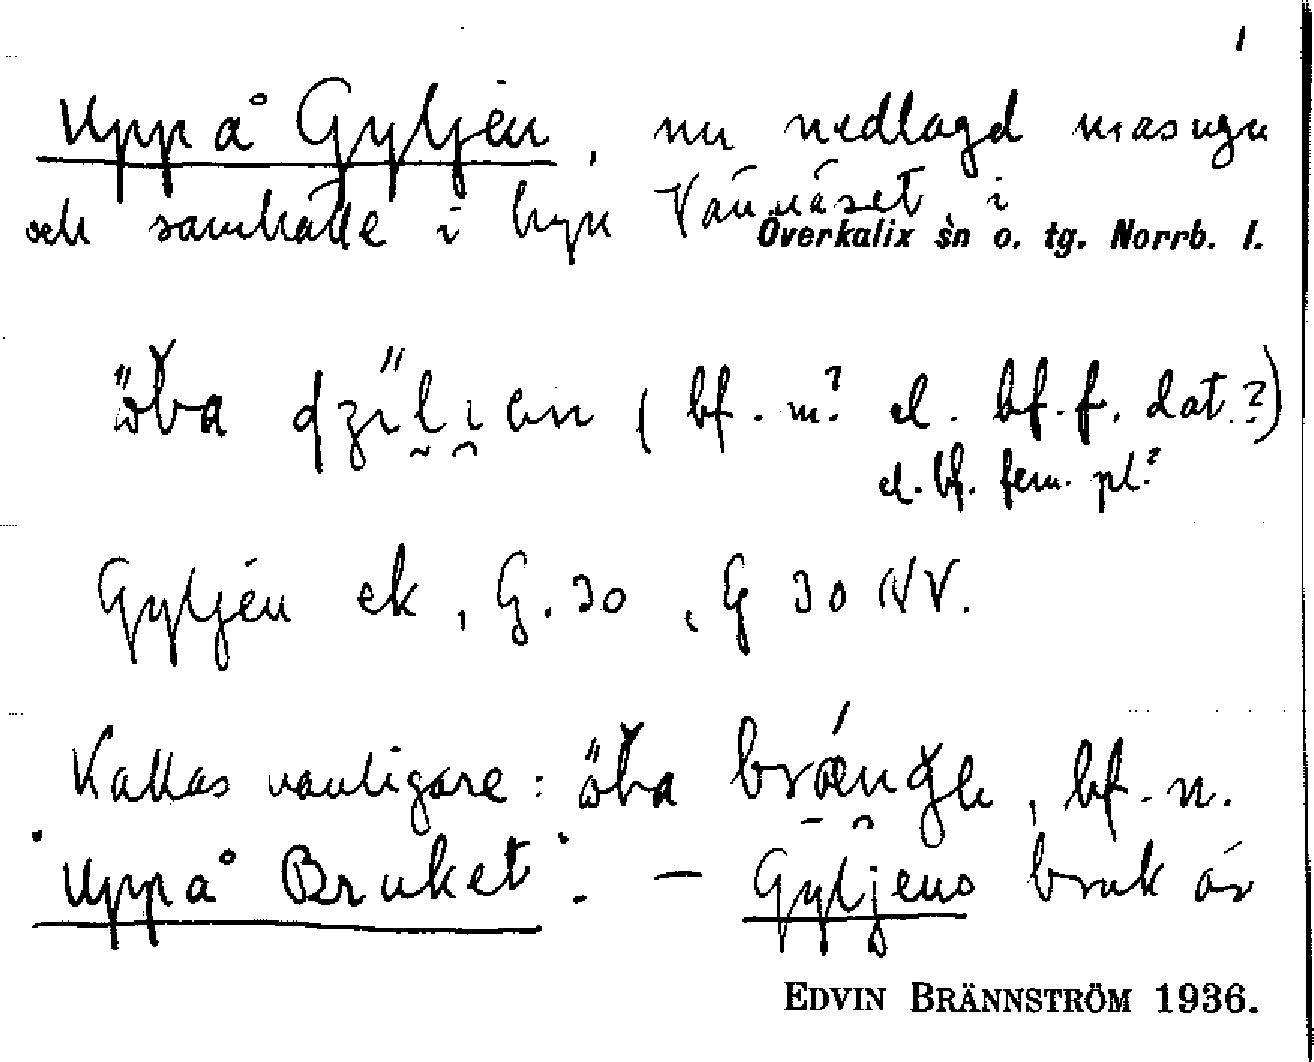 1
Uppå Gyljén, nu nedlagd masugn
och samhälle i byn Vännäset i
Överkalix sn o. tg. Norrb. l.
(bf. m.? el. bf. f. dat.?)
el. bf. fem. pl.?
Gyljén ek, G. 30, G 30 NV.
Kallas vanligare: , bf. n.
"Uppå Bruket". — Gyljens bruk är
EDVIN BRÄNNSTRÖM 1936.